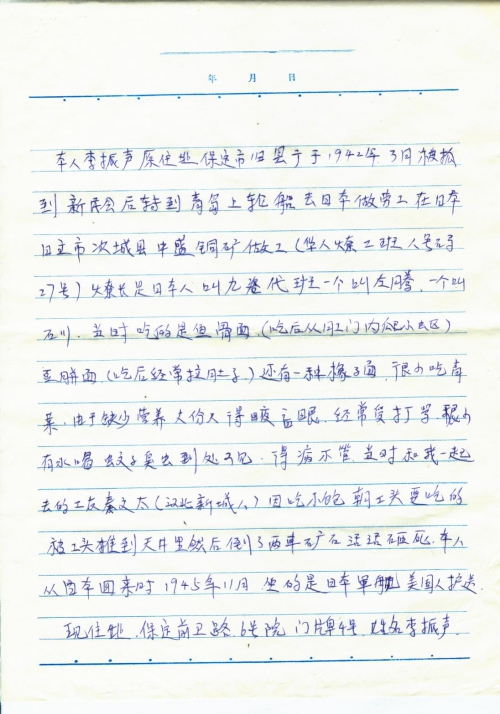 年 月 日
本人李振声原住址保定市旧县于于1942年3月被抓
到新民会后转到青岛上轮船去日本做劳工在日本
日立市次城县中盛铜矿做工(华人煉工班人名号
27号)煉长是日本人叫九卷代班一个叫左同誊,一个叫
石川.当时吃的是鱼骨面(吃后从肛门内爬小去区)
豆餅面(吃后经常拉肚子)还有一种橡子面,很少吃青
菜,由于缺少营养大份人得眼盲眼.经常受打骂.很少
有水喝蚊子臭虫到处可见.得病不管.当时和我一起
去的工友秦文太(河北新城人)因吃不饱朝工头要吃的
被工头推到天井里然后倒了两車矿石活活砸死.本人
从日本回来时1945年11月.坐的是日本軍舰美国人护送.
现住址.保定前卫路.6号院 门牌4号.姓名李振声.